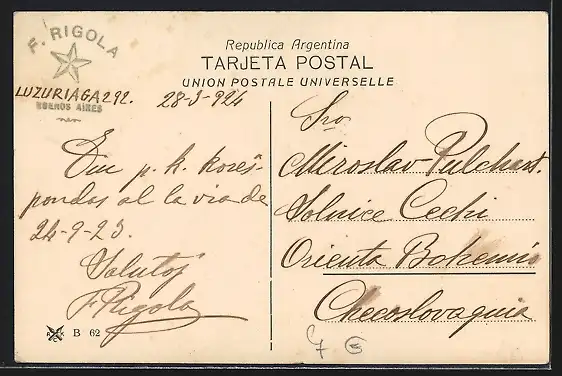 F. RIGOLA
LUZURIAGA 292.
BUENOS AIRES
Republica Argentina
TARJETA POSTAL
UNION POSTALE UNIVERSELLE
28-3-924
Sro
Miroslav Pulchart.
Solnice Cechi
Orienta Bohemia
Checoslovaquia
Ĉiu p. k. kores-
pondas al la via de
24-9-23.
Salutoj
F Rigola
B 62